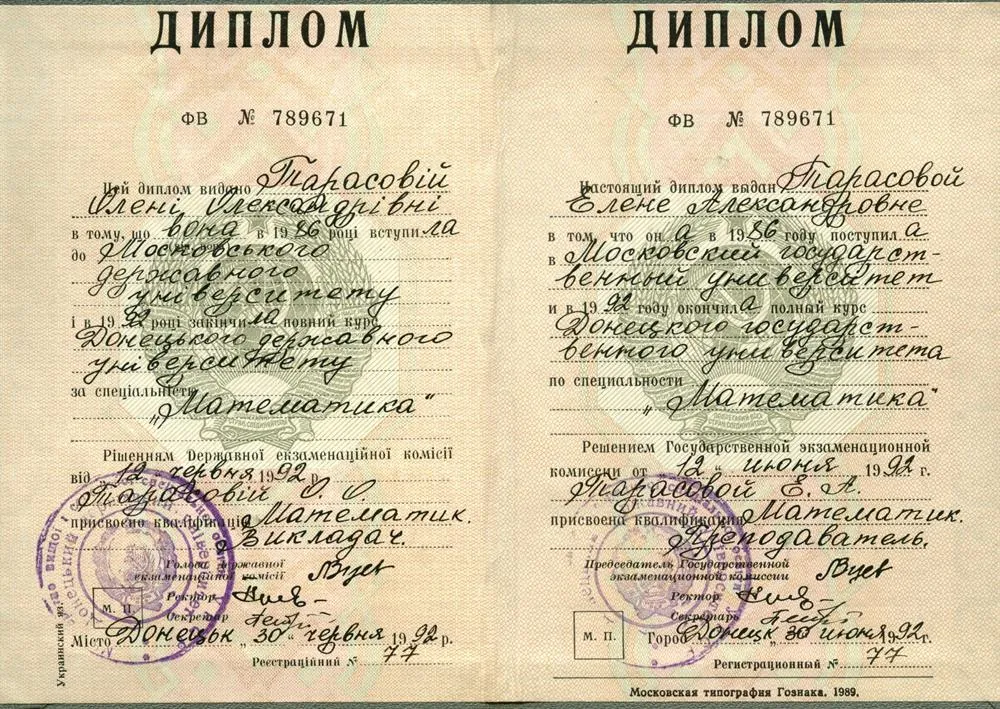 ДИПЛОМ
ФВ № 789671
Цей диплом видано Тарасовій
Олені Олександрівні
в тому, що вона в 1986 році вступила
до Московського
державного
університету
і в 1992 році закінчила повний курс
Донецького державного
університету
за спеціальністю
„Математика“
Рішенням Державної екзаменаційної комісії
від „12 червня 1992 р.
Тарасовій О. О.
присвоєно кваліфікацію Математик.
Викладач.
Голова Державної
екзаменаційної комісії
Ректор
Секретар
М. П.
Місто Донецьк „30“ червня 1992 р.
Реєстраційний № 77
Украинский яз.
ДИПЛОМ
ФВ № 789671
Настоящий диплом выдан Тарасовой
Елене Александровне
в том, что он а в 1986 году поступил а
в Московский государст-
венный университет
и в 1992 году окончил а полный курс
Донецкого государст-
венного университета
по специальности
„Математика“
Решением Государственной экзаменационной
комиссии от „12“ июня 1992 г.
Тарасовой Е. А.
присвоена квалификация Математик.
Преподаватель.
Председатель Государственной
экзаменационной комиссии
Ректор
Секретарь
М. П.
Город Донецк „30 июня 1992 г.
Регистрационный № 77
Московская типография Гознака. 1989.